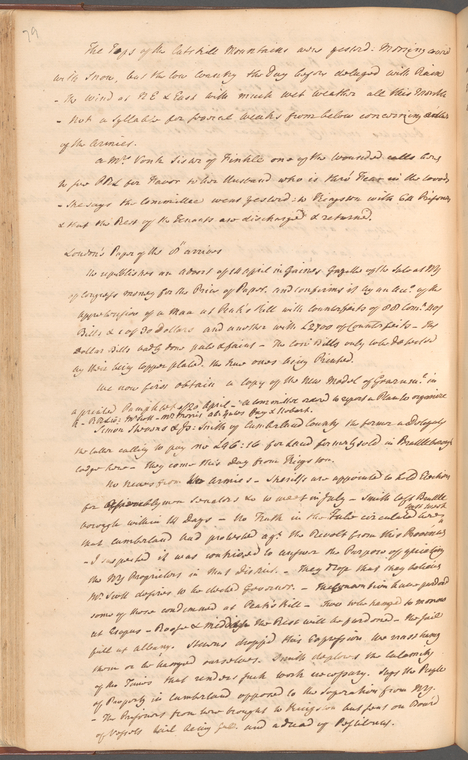 79
The Tops of the Catskill Mountains were yesterd: Morning covered
with Snow, but the low Country the Day before deluged with Rain
- The Wind at N E & East with much wet Weather all this Month
- Not a Syllable for several Weeks from below concerning either
of the Armies.
A Mrs Vonk Sister of Finkle one of the wounded calls here
to for Favor to her Husband who is thro' Fear in the Woods
- She says the Committee went yesterd: to Kingston with 60 Prisoners
& that the Rest of the Tenants are discharged & returned.
London's Paper of the arrives
He republishes an Advert of 14 April in Gaines Gazette of the Sale at NY
of Congress Money for the Price of Paper, and confirms it by an Acct. of the
Apprehension of a Man at Peak's Kill with Counterfeits of Cont. 40/
Bills & of 30 Dollars and another with £2700 of Counterfeits - The
Dollar Bills badly done pale & faint - The Con Bills only to be detected
by their being Copper plated, the true ones being Printed.
We now first obtain a Copy of the New Model of Governmt. in
a printed Pamphlet of 20 April - A Committee named to report a Plan to organize
it - Mr Scott - Mr Morris, Jay & Hobart.
Simon Stevens & Smith of Cumberland County the former a Delegate
the latter calling to pay me for Land formerly sold in Brattleborough
lodge here - They came this Day from Kingston.
No news from the Armies - Sheriffs are appointed to hold Elections
for Assemblymen Senators &c to meet in July - Smith left Brattle
borough within 14 Days - No Truth in the Tale circulated here last Week
that Cumberland had protested agt. the Revolt from this Province
- I suspected it was contrived to answer the Purpose of
the NY Proprietors in that District. - They that they believe
Mr Scott desires to be elected Governor. - The Convention have pardoned
some of those condemned at Peak's Kill - Two to be hanged to morrow
at Esopus - Roosa & Middagh the Rest will be pardoned - The Jail
full at Albany. Stevens dropped this Expression We must hang
them or be hanged ourselves. Smith deplores the Calamity
of the Times that renders such Work necessary. Says the People
of Property in Cumberland opposed to the Separation from NY.
- The Prisoners from were brought to Kingston but sent on Board
of Vessels being and a dread of Pestilence.